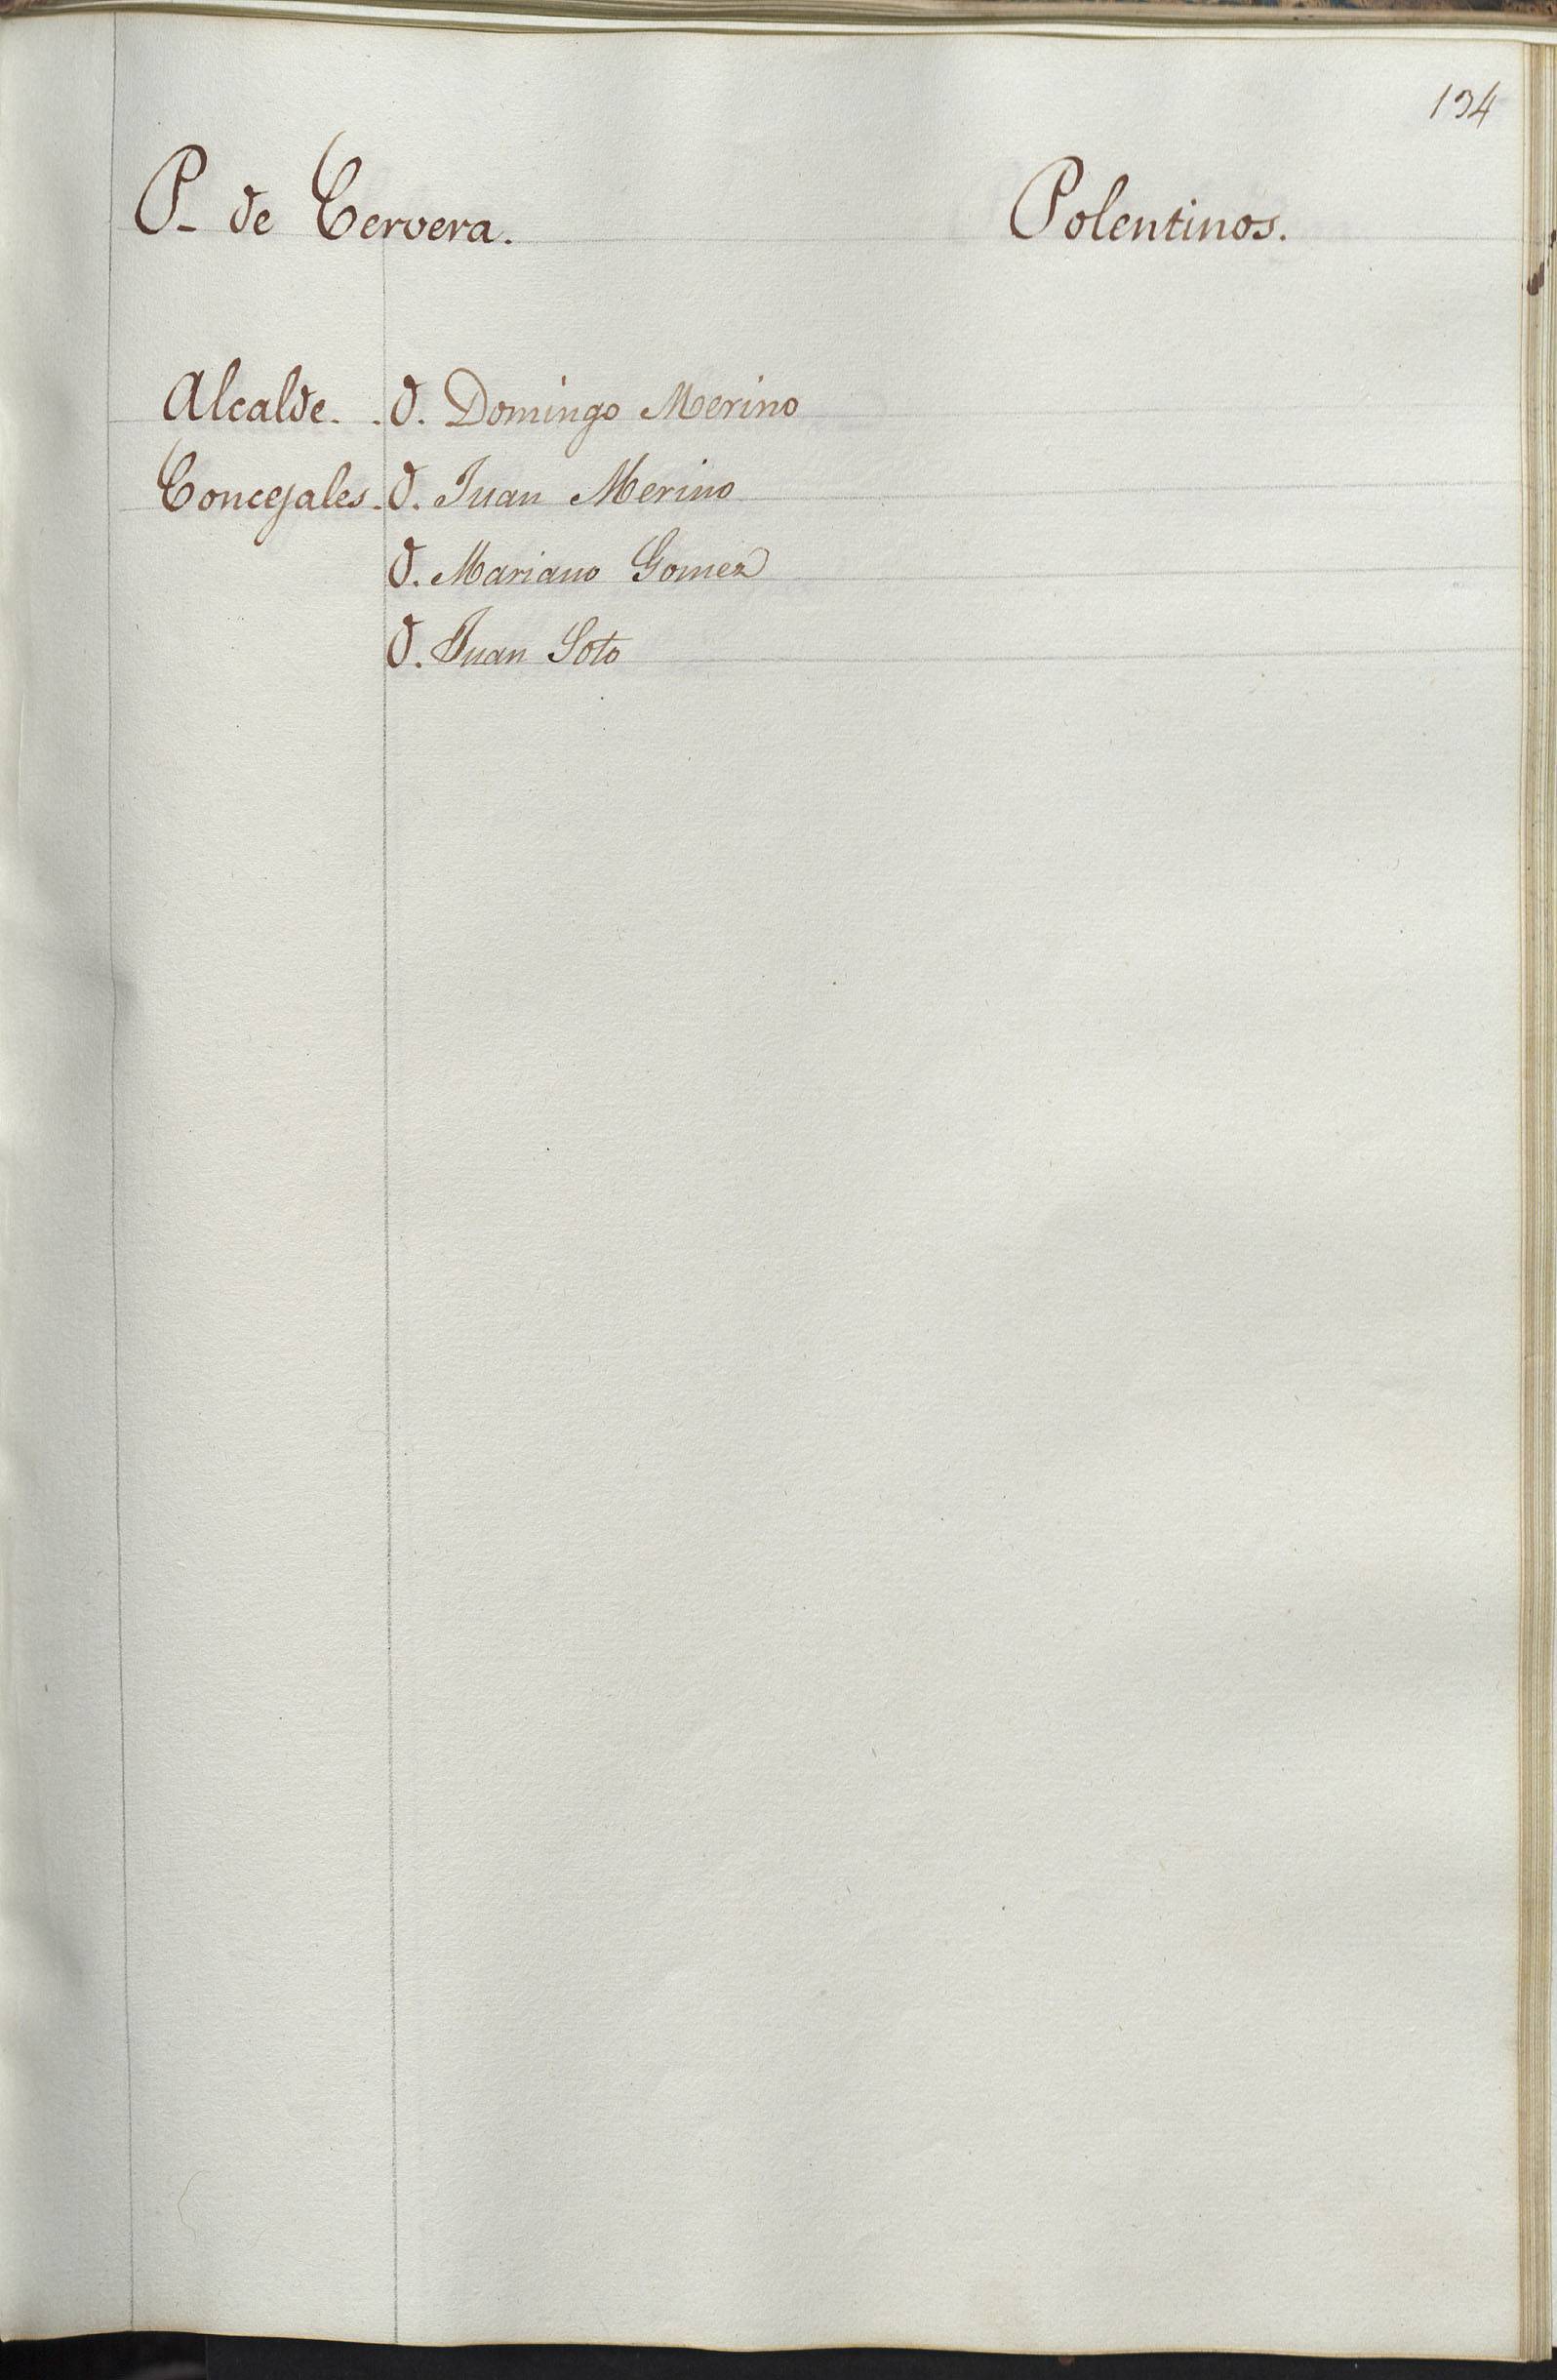 134
P. de Cervera. Polentinos.
Alcalde. . D. Domingo Merino
Concejales. D. Juan Merino
D. Mariano Gomez
D. Juan Soto